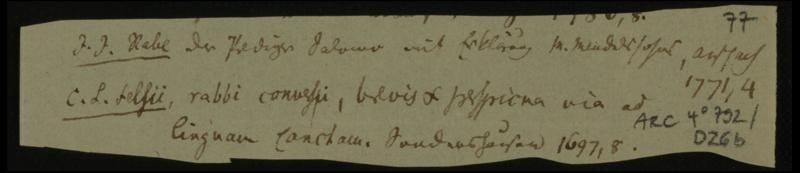 1786, 8.
77
J. J. Rabe der Prediger Salomo mit Erklärung M. Mendelssohns, Anspach
1771, 4
C. L. Felsii, rabbi conversi, brevis & perspicua via ad
linguam sanctam. Sondershausen 1697, 8.
ARC 4° 792/
D26b